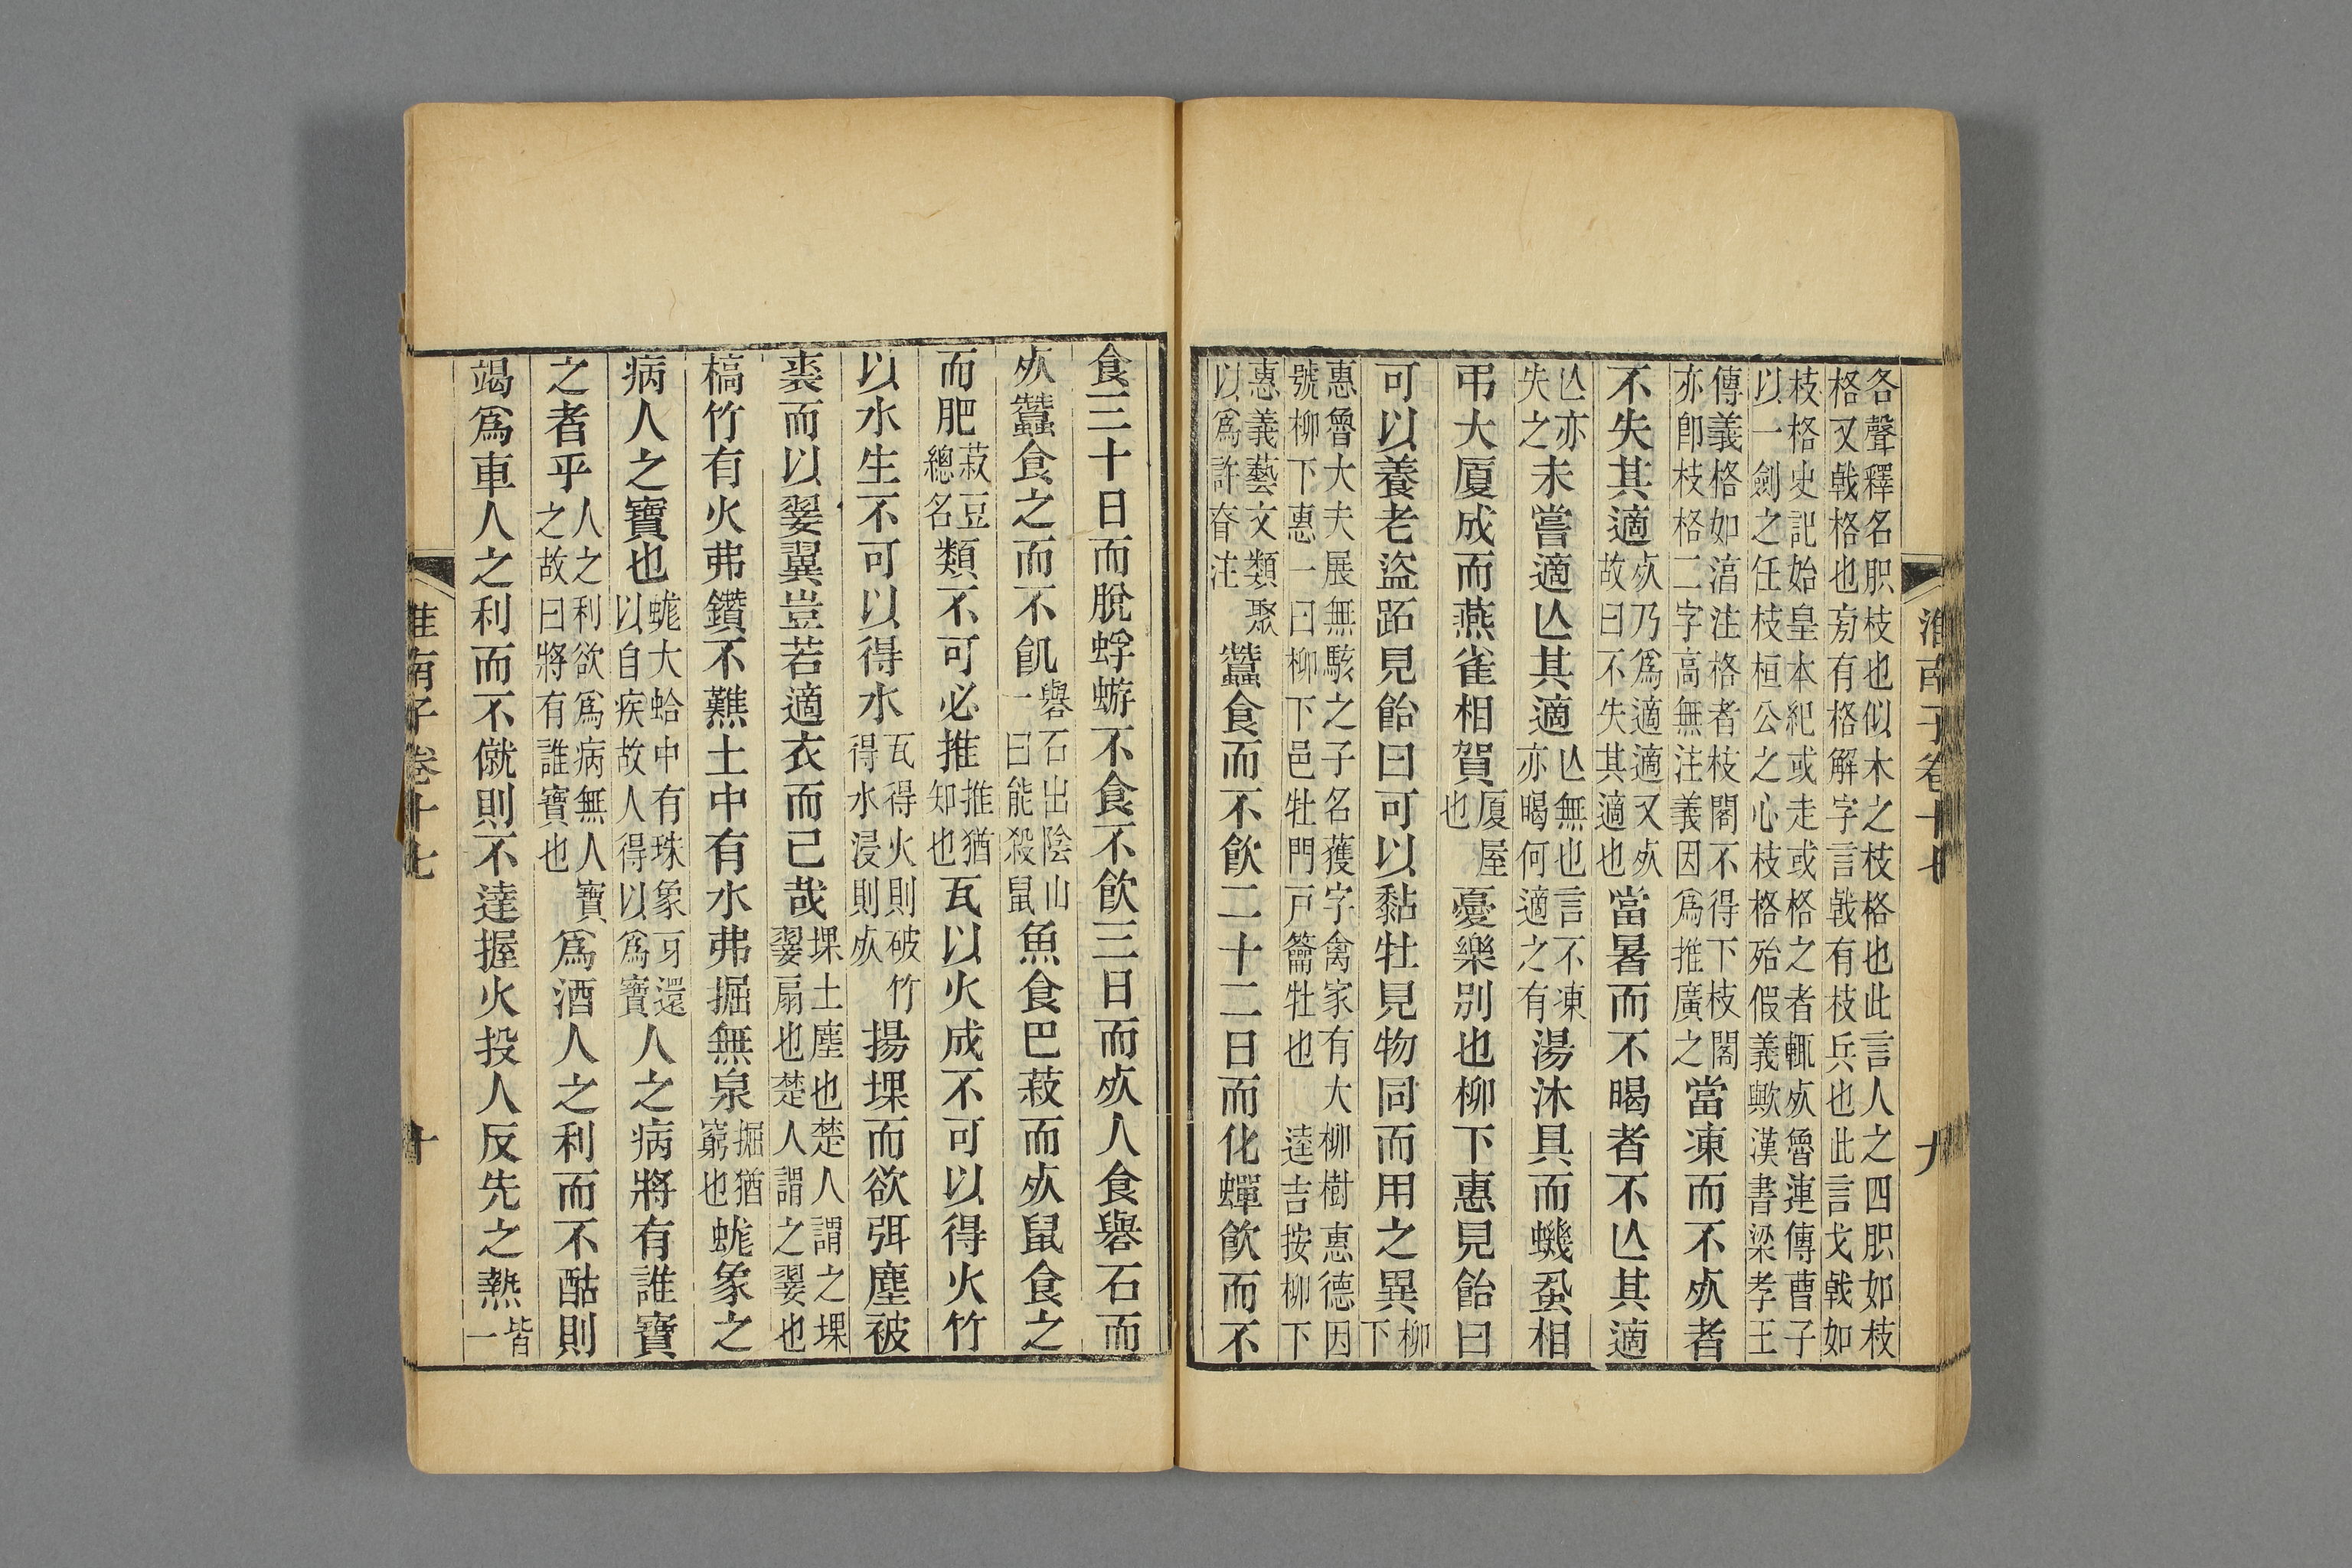 淮南子卷十七 九
各聲釋名胑枝也似木之枝格也此言人之四胑如枝
格又戟格也㫄有格解字言戟有枝兵也此言戈戟如
枝格史記始皇本紀或走或格之者輒𣦸魯連傳曹子
以一劍之任枝桓公之心枝格殆假義歟漢書梁孝王
傳義格如湻注格者枝閣不得下枝閣亦卽枝格二字高無注義因爲推廣之當凍而不𣦸者
不失其適𣦸乃爲適適又𣦸故曰不失其適也當暑而不暍者不亾其適
亾亦失之未嘗適亾其適亾無也言不凍亦暍何適之有湯沐具而蟣蝨相
弔大厦成而燕雀相賀厦屋也憂樂别也柳下惠見飴曰
可以養老盜跖見飴曰可以黏牡見物同而用之異柳下
惠魯大夫展無駭之子名獲字禽家有大柳樹惠德因
號柳下惠一曰柳下邑牡門戸籥牡也 逵吉按柳下
惠義藝文類聚以爲許昚注蠶食而不飮二十二日而化蟬飮而不
食三十日而脫蜉蝣不食不飮三日而𣦸人食礜石而
𣦸蠶食之而不飢礜石出陰山一曰能殺鼠魚食巴菽而𣦸鼠食之
而肥菽豆總名類不可必推推猶知也瓦以火成不可以得火竹
以水生不可以得水瓦得火則破竹得水浸則𣦸揚堁而欲弭塵被
裘而以翣翼豈若適衣而已哉堁土塵也楚人謂之堁翣扇也楚人謂之翣也
槁竹有火弗鑽不難土中有水弗掘無泉掘猶窮也蛖象之
病人之寶也蛖大蛤中有珠象牙還以自疾故人得以爲寶人之病將有誰寶
之者乎人之利欲爲病無人寶之故曰將有誰寶也爲酒人之利而不酤則
竭爲車人之利而不僦則不達握火投人反先之熱皆一
淮南子卷十七 十